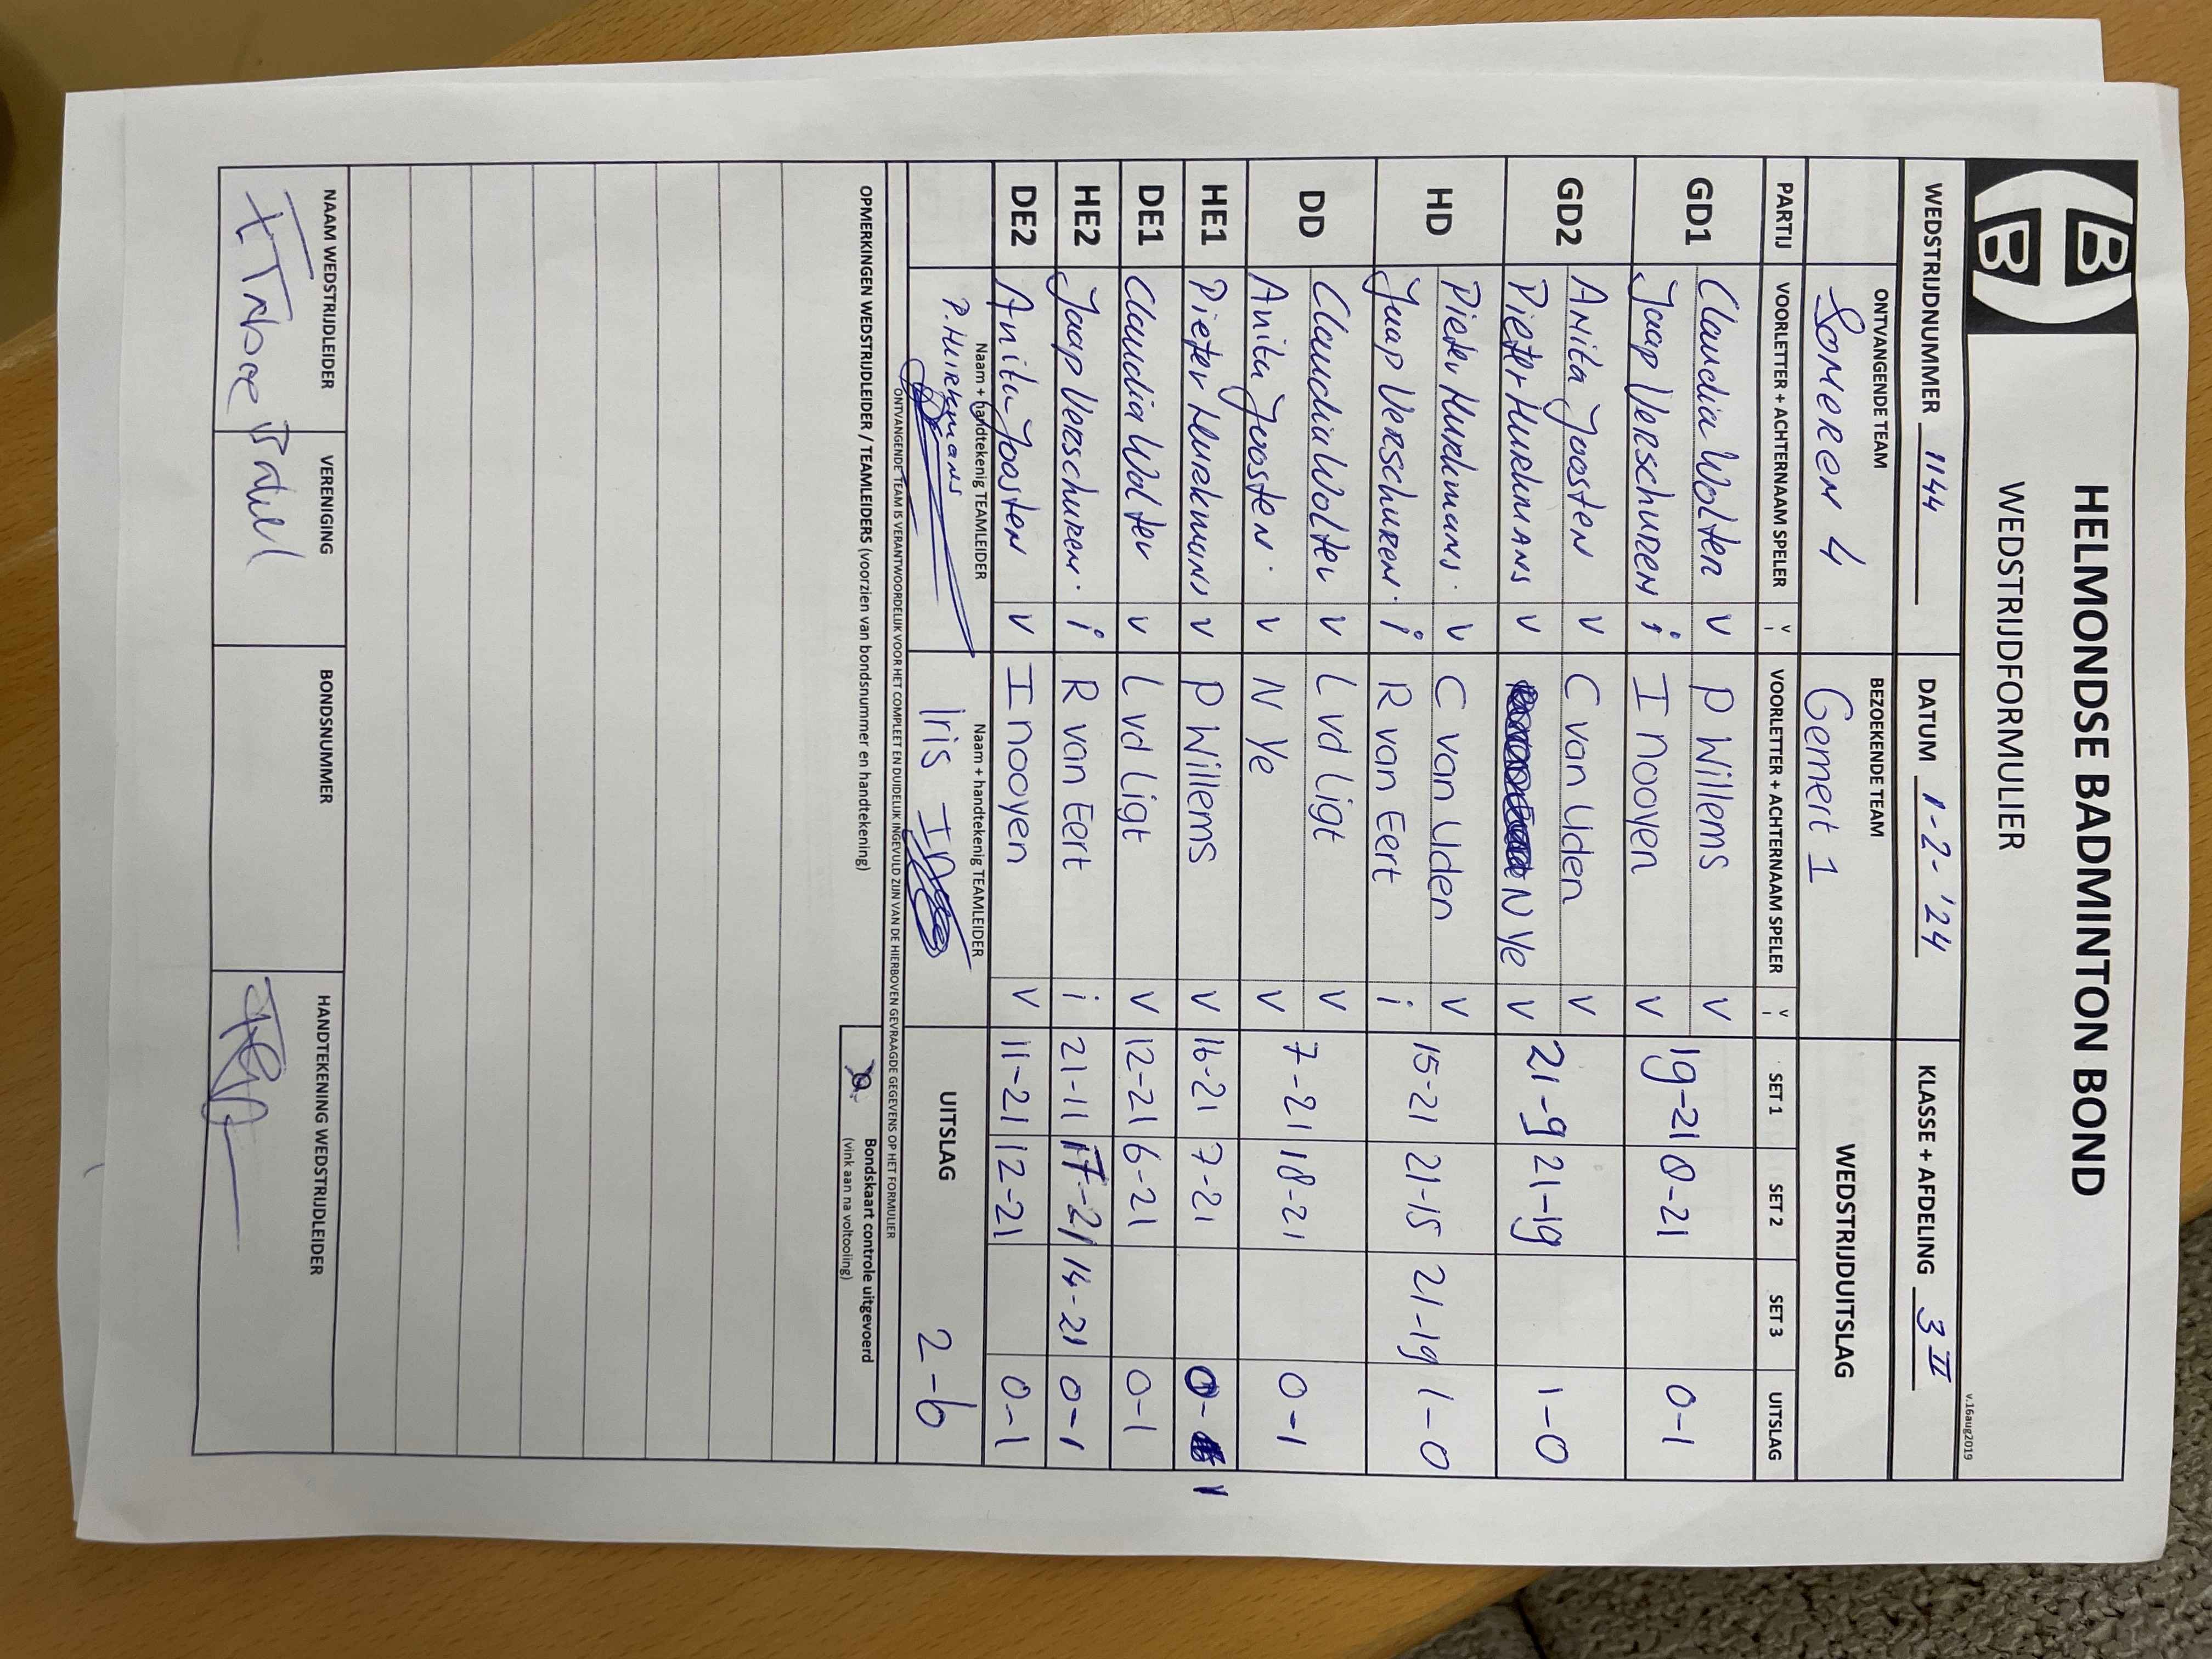 HELMONDSE BADMINTON BOND
WEDSTRIJDFORMULIER
v.16aug2019
WEDSTRIJDNUMMER 1144 DATUM 1-2-'24 KLASSE + AFDELING 3 II
ONTVANGENDE TEAM BEZOEKENDE TEAM WEDSTRIJDUITSLAG
Someren 4 Gemert 1
PARTIJ VOORLETTER + ACHTERNAAM SPELER V I VOORLETTER + ACHTERNAAM SPELER V I SET 1 SET 2 SET 3 UITSLAG
GD1 Claudia Wolter v P Willems v 19-21 8-21 0-1
Jaap Verschuren i I Nooyen v
GD2 Anita Joosten v C van Uden v 21-9 21-19 1-0
Pieter Hurkmans v N Ye v
HD Pieter Hurkmans. v C van Uden v 15-21 21-15 21-19 1-0
Jaap Verschuren. i R van Eert i
DD Claudia Wolter v L vd Ligt v 7-21 18-21 0-1
Anita Joosten. v N Ye v
HE1 Pieter Hurkmans v P Willems v 16-21 7-21 0-1
DE1 Claudia Wolter v L vd Ligt v 12-21 6-21 0-1
HE2 Jaap Verschuren. i R van Eert i 21-11 17-21 14-21 0-1
DE2 Anita Joosten v I Nooyen v 11-21 12-21 0-1
Naam + handtekenig TEAMLEIDER Naam + handtekenig TEAMLEIDER UITSLAG 2-6
P. Hurkmans Iris
ONTVANGENDE TEAM IS VERANTWOORDELIJK VOOR HET COMPLEET EN DUIDELIJK INGEVULD ZIJN VAN DE HIERBOVEN GEVRAAGDE GEGEVENS OP HET FORMULIER
OPMERKINGEN WEDSTRIJDLEIDER / TEAMLEIDERS (voorzien van bondsnummer en handtekening) Bondskaart controle uitgevoerd
(vink aan na voltooling)
NAAM WEDSTRIJDLEIDER VERENIGING BONDSNUMMER HANDTEKENING WEDSTRIJDLEIDER